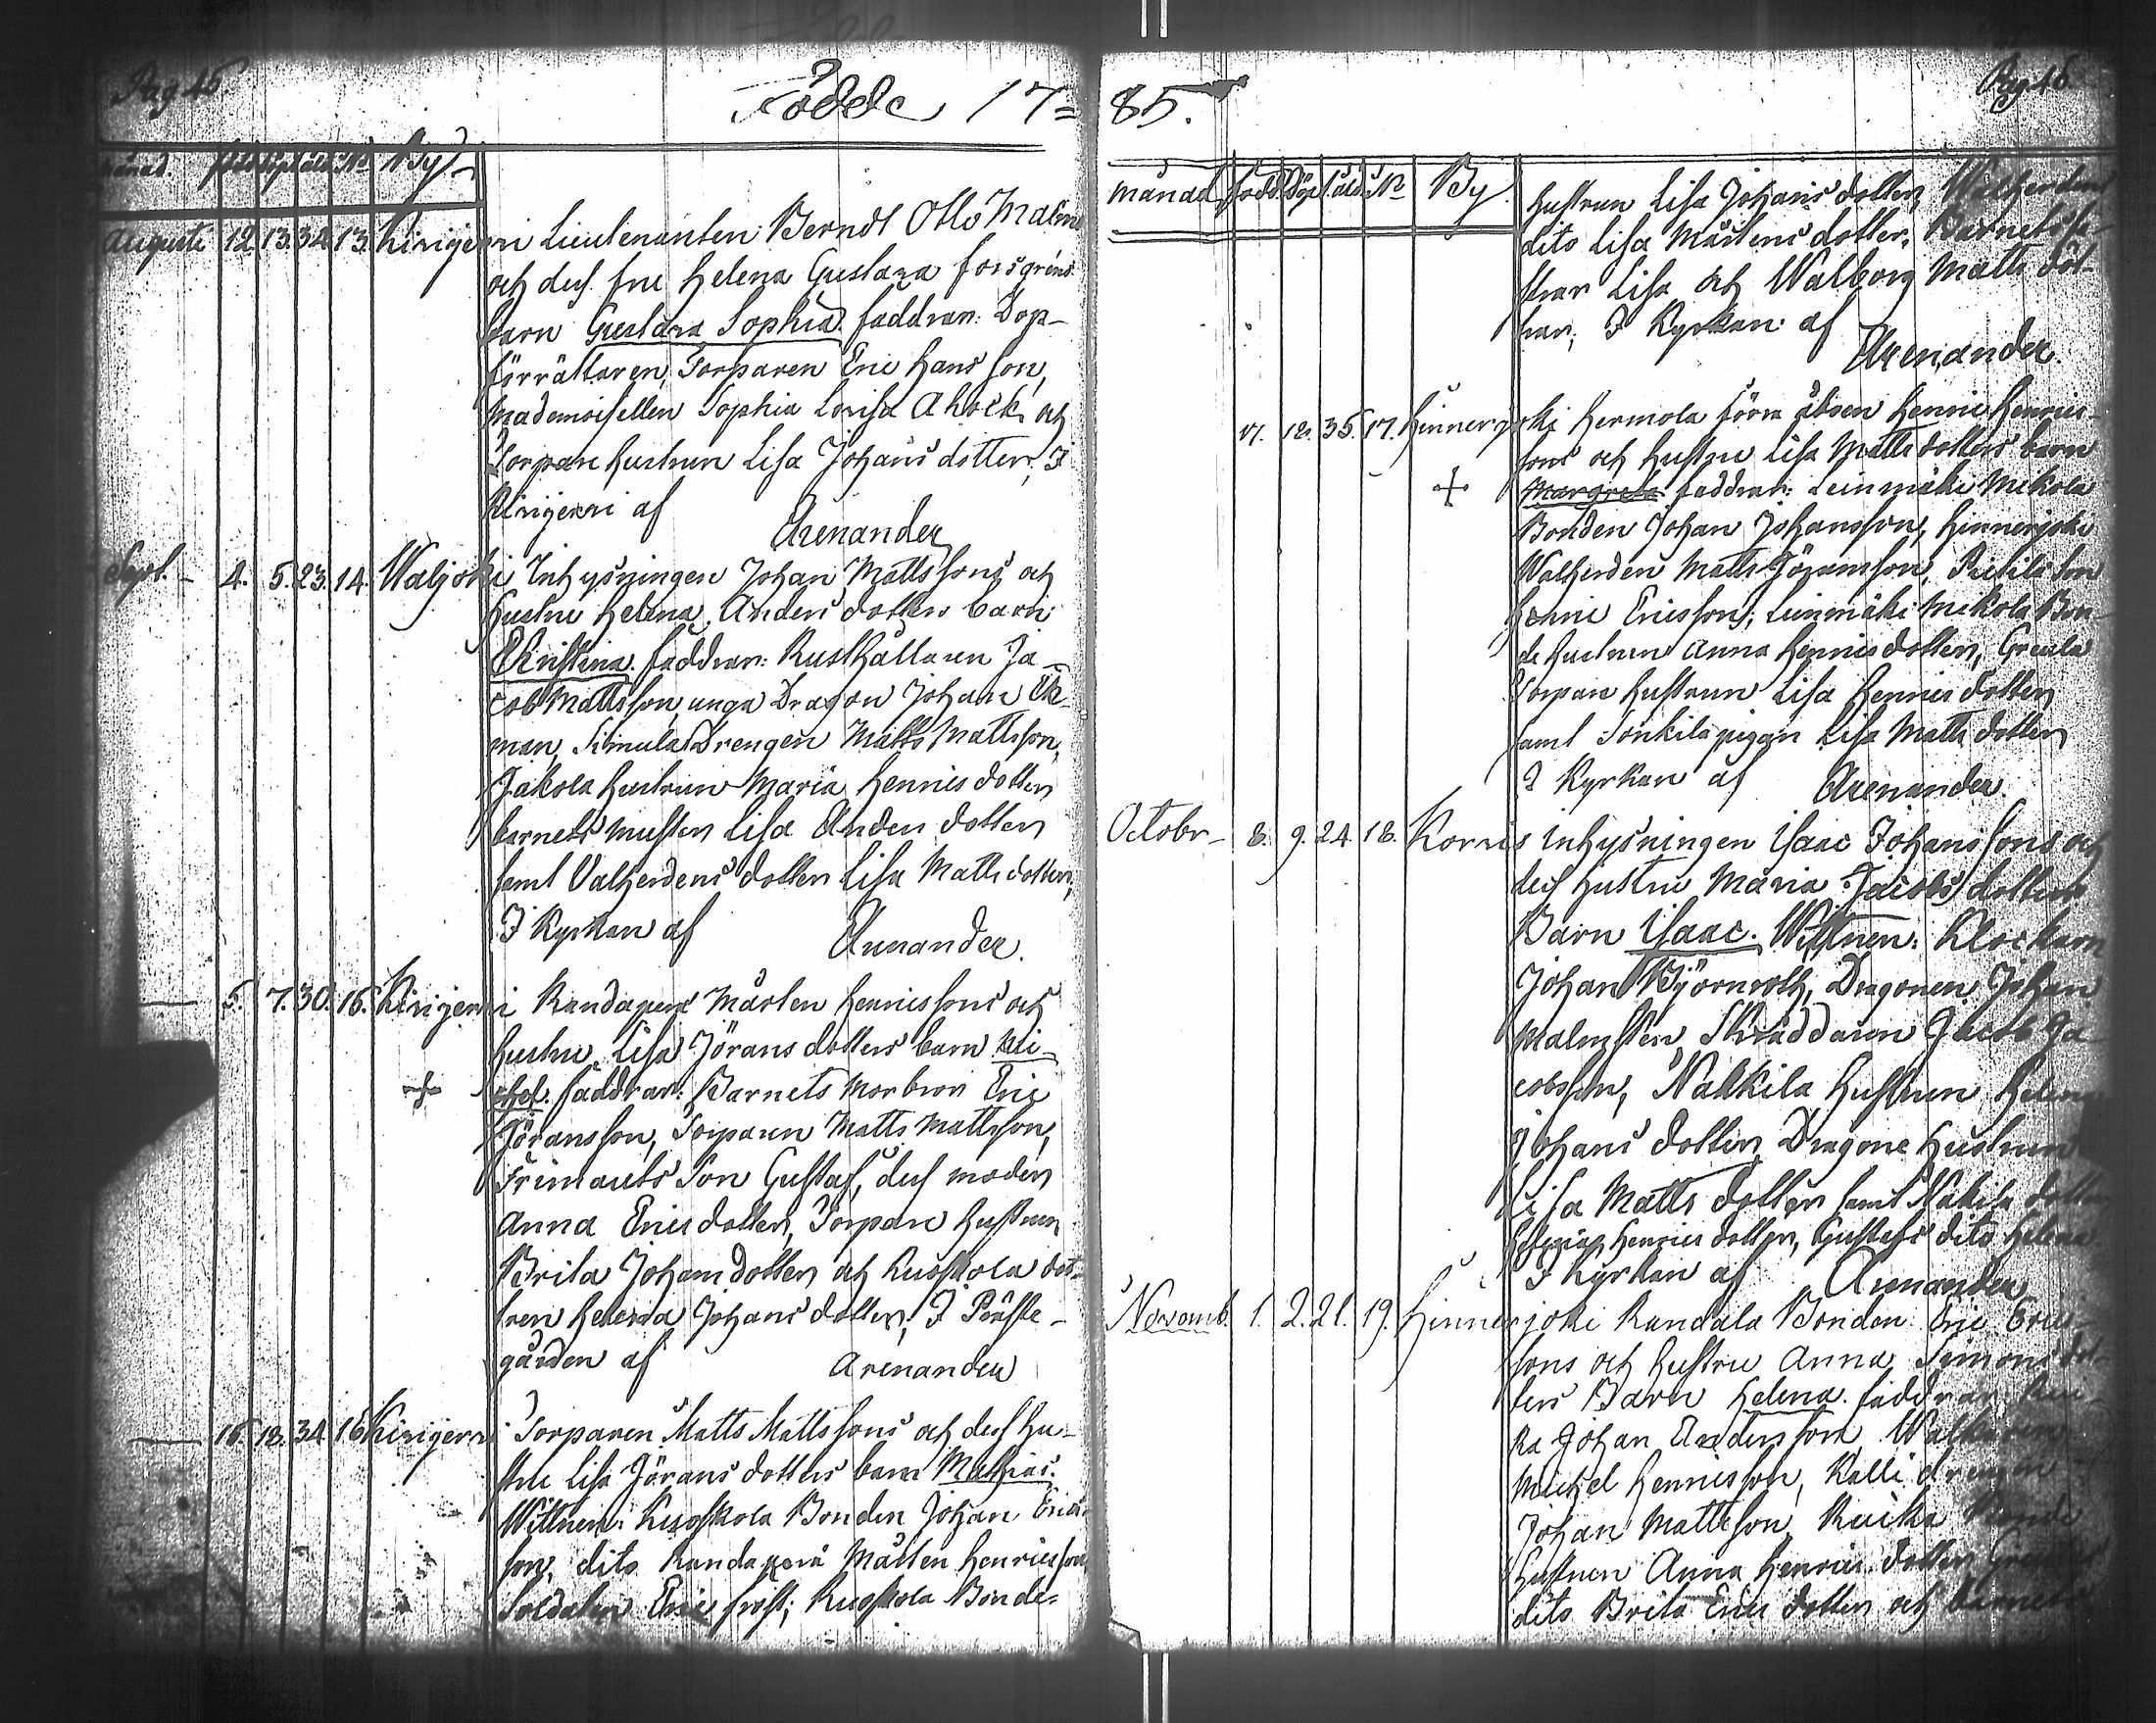 Pag 45.
Födde 17=
månad. född döpt åld. No By
Augusti 12. 13. 34. 13. Kirijerri Lieutenanten Berndt Otto Malm
och dess fru Helena Gustava Forsgréns
barn Gustava Sophia. faddrar: Dop-
förrättaren, Torparen Eric Hans son,
Mademoisellen Sophia Lovisa Ahock och
Torpare hustrun Lisa Johans dotter, I
Kirijerri af Arenander
Sept. 4. 5. 23. 14. Waljoki Inhysningen Johan Mattssons och
hustru Helena Anders dotters barn
Christina. faddrar: Rusthållaren Ja-
cob Mattsson, unga Dragon Johan Ek-
man, Drengen Matts Mattsson,
Jakola hustrun Maria Henricsdotter
barnets muster Lisa Anders dotter
samt Valherdens dotter Lisa Matts dotter,
I Kyrkan af Arenander.
5. 7. 30. 15. Kirijerri Mårten Henricssons och
hustru Lisa Jörans dotters barn Mi-
chel. faddrar: Barnets Morbror Eric
Jöransson, Torparen Matts Mattsson,
Son Gustaf, dess moder
Anna Ericsdotter, Torpare hustrun
Brita Johansdotter och Ruoskola dot-
tren Helena Johans dotter, I Präste-
gården af Arenander
16. 18. 34. 16 Kirijerri Torparen Matts Mattssons och dess hu-
stru Lisa Jörans dotters barn Mathias.
Wittnen: Ruoskola Bonden Johan Erics
son, dito Mårten Henricsson
Soldaten Eric frost; Ruoskola Bonde-
85.
Pag 46
månad född Döpt åld. No By
hustrun Lisa Johans dotter, Walherdens
dito Lisa Mårtens dotter, Barnets sy-
strar Lisa och Walborg Matts döt-
trar, I Kyrkan af
Arenander.
17. 18. 35. 17. Hinnerjoki Hermola förra åboen Henric Henrics-
sons och hustru Lisa Matts dotters barn
Margreta. faddrar: Leinmäki Mikola
Bonden Johan Johansson, Hinnerjoki
Walherden Matts Jöransson, son
Henric Ericsson; Leinmäki Mikola Bon-
de hustrun Anna Henricsdotter, Greula
Torpare hustrun Lisa Henrics dotter
samt Sonkila pigan Lisa Matts dotter
I Kyrkan af Arenander.
Octobr 8. 9. 24. 18. Korvis Inhysningen Isaac Johanssons och
dess hustru Maria Jacobs dotters
Barn Isaac. Wittnen: Klockarn
Johan Björnroth, Dragonen Johan
Malmsten, Skräddaren Jacob Ja-
cobsson, Nalkila hustrun Helena
Johans dotter, Dragone hustrun
Lisa Matts dotter samt dotter
Henrics dotter, Gustafs dito Helena
I Kyrkan af Arenander
Novemb. 1. 2. 21. 19. Hinnerjoki Randala Bonden Eric Erics-
sons och hustru Anna Simons dot-
ters Barn Helena. faddrar:
Johan Andersson
Michel Henricsson, Kalli drengen
Johan Mattsson,
hustrun Anna Henrics dotter
dito Brita Erics dotter och barnets